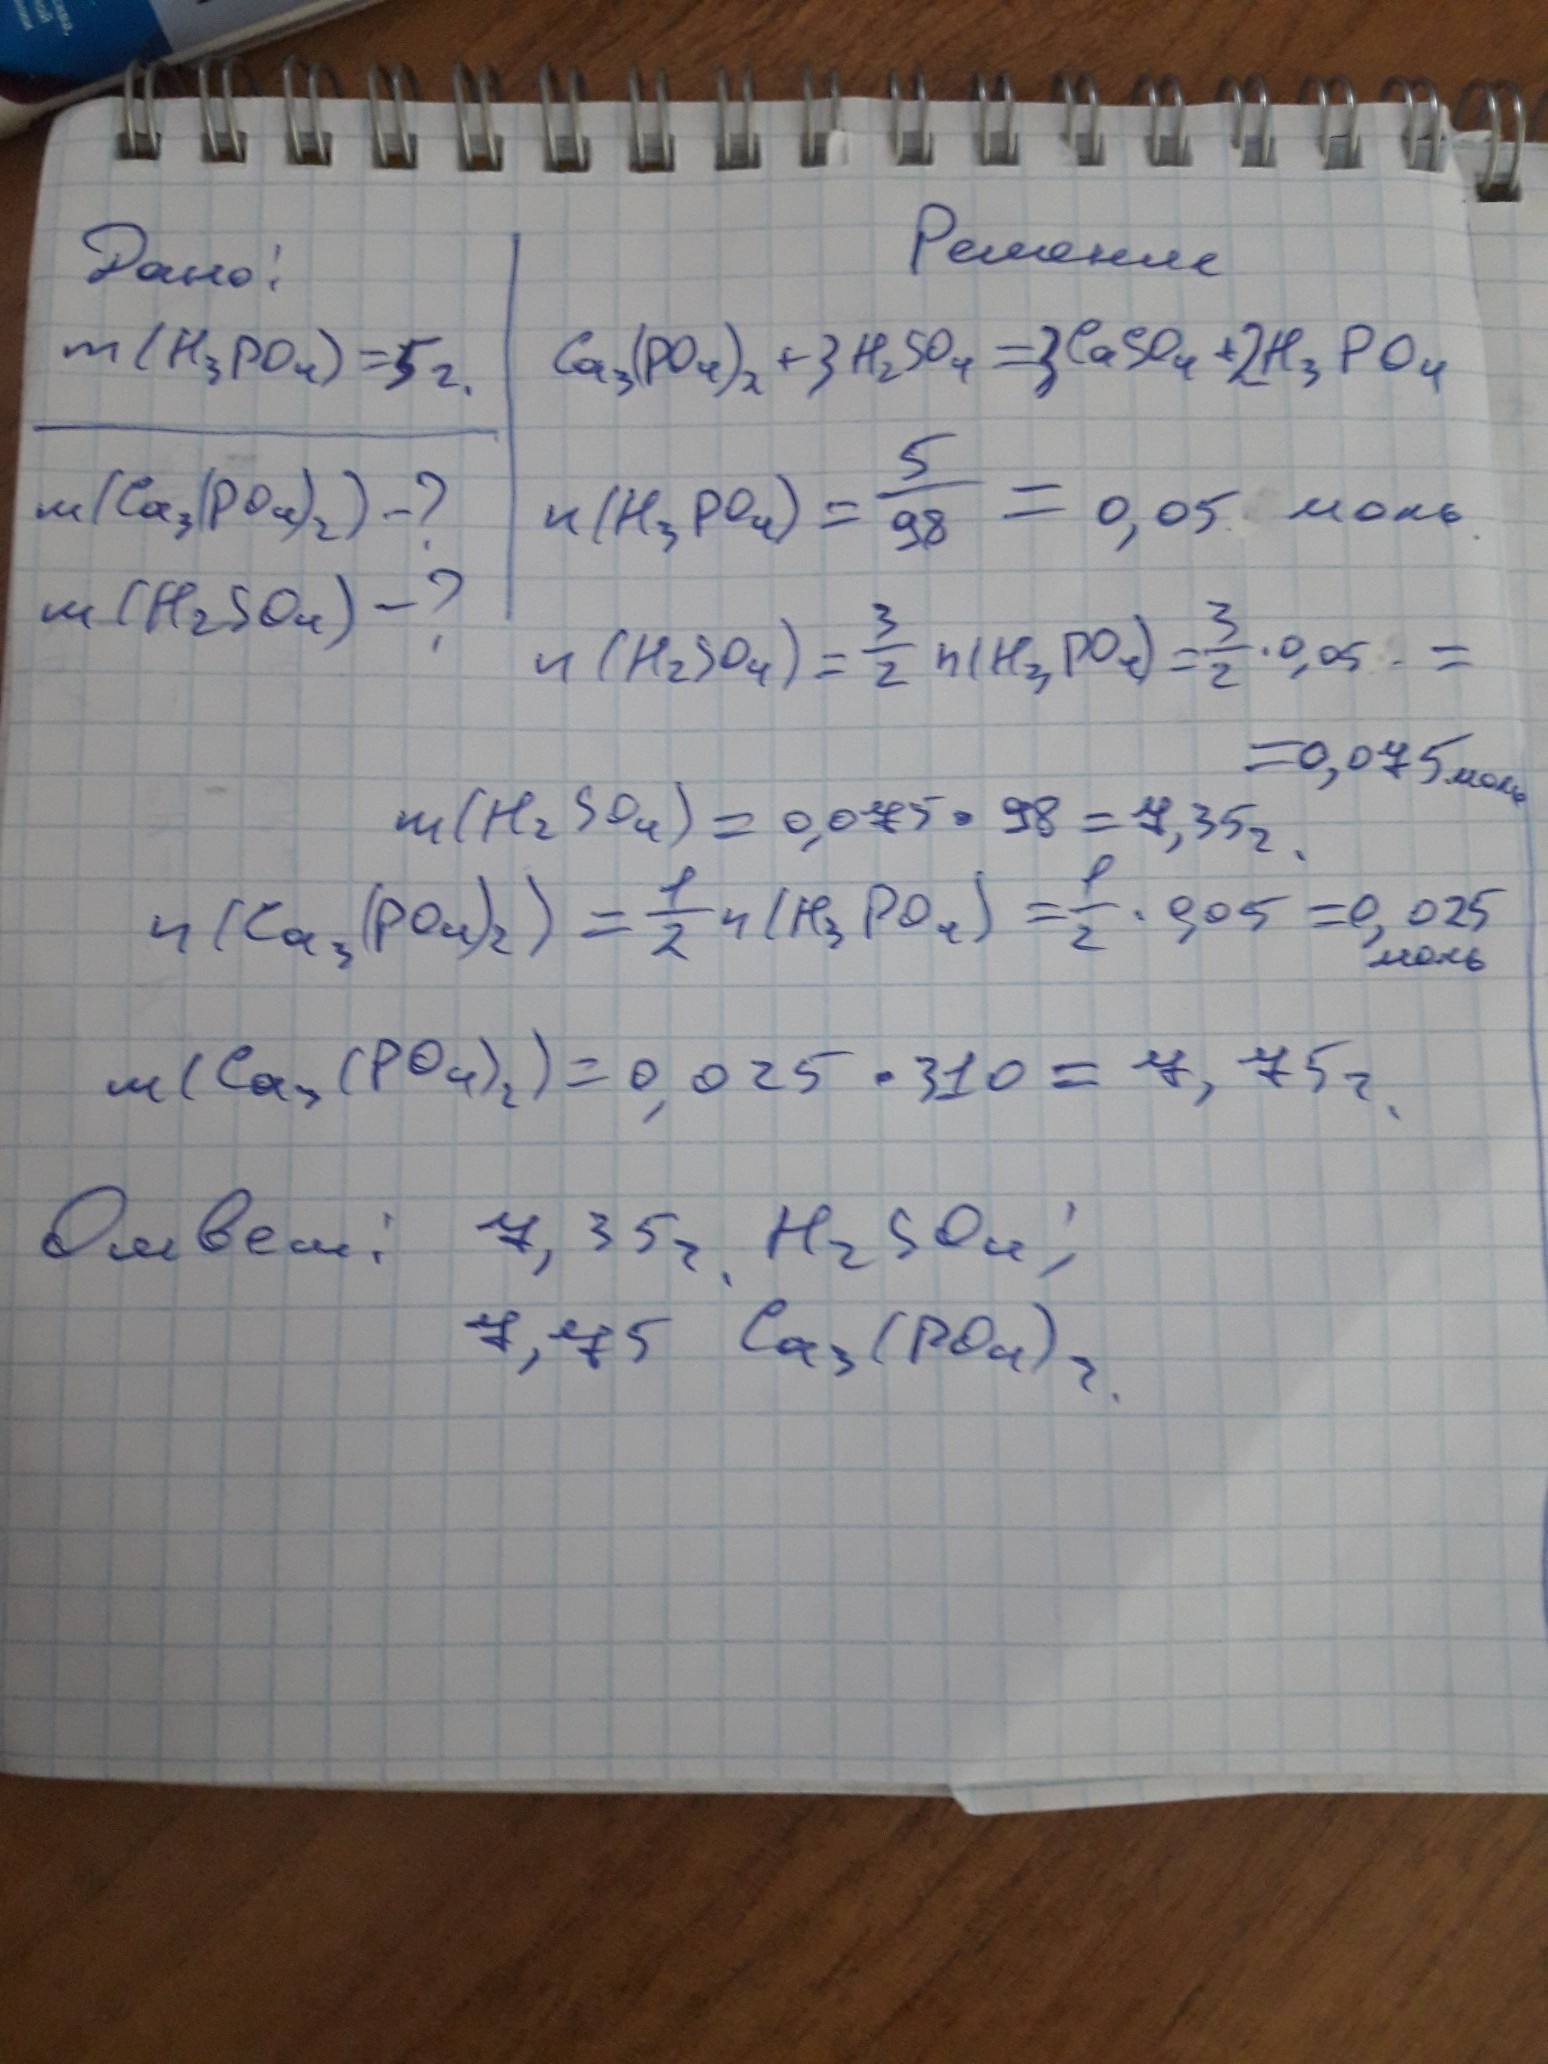 Дано:
m(H₃PO₄)=5г.
m(Ca₃(PO₄)₂)-?
m(H₂SO₄)-?
Решение
Ca₃(PO₄)₂+3H₂SO₄=3CaSO₄+2H₃PO₄
n(H₃PO₄)=5/98=0,05 моль.
n(H₂SO₄)=3/2 n(H₃PO₄)=3/2·0,05 =
=0,075моль
m(H₂SO₄)=0,075·98=7,35г.
n(Ca₃(PO₄)₂)=1/2 n(H₃PO₄)=1/2·0,05=0,025
моль
m(Ca₃(PO₄)₂)=0,025·310=7,75г.
Ответ: 7,35г. H₂SO₄;
7,75 Ca₃(PO₄)₂.